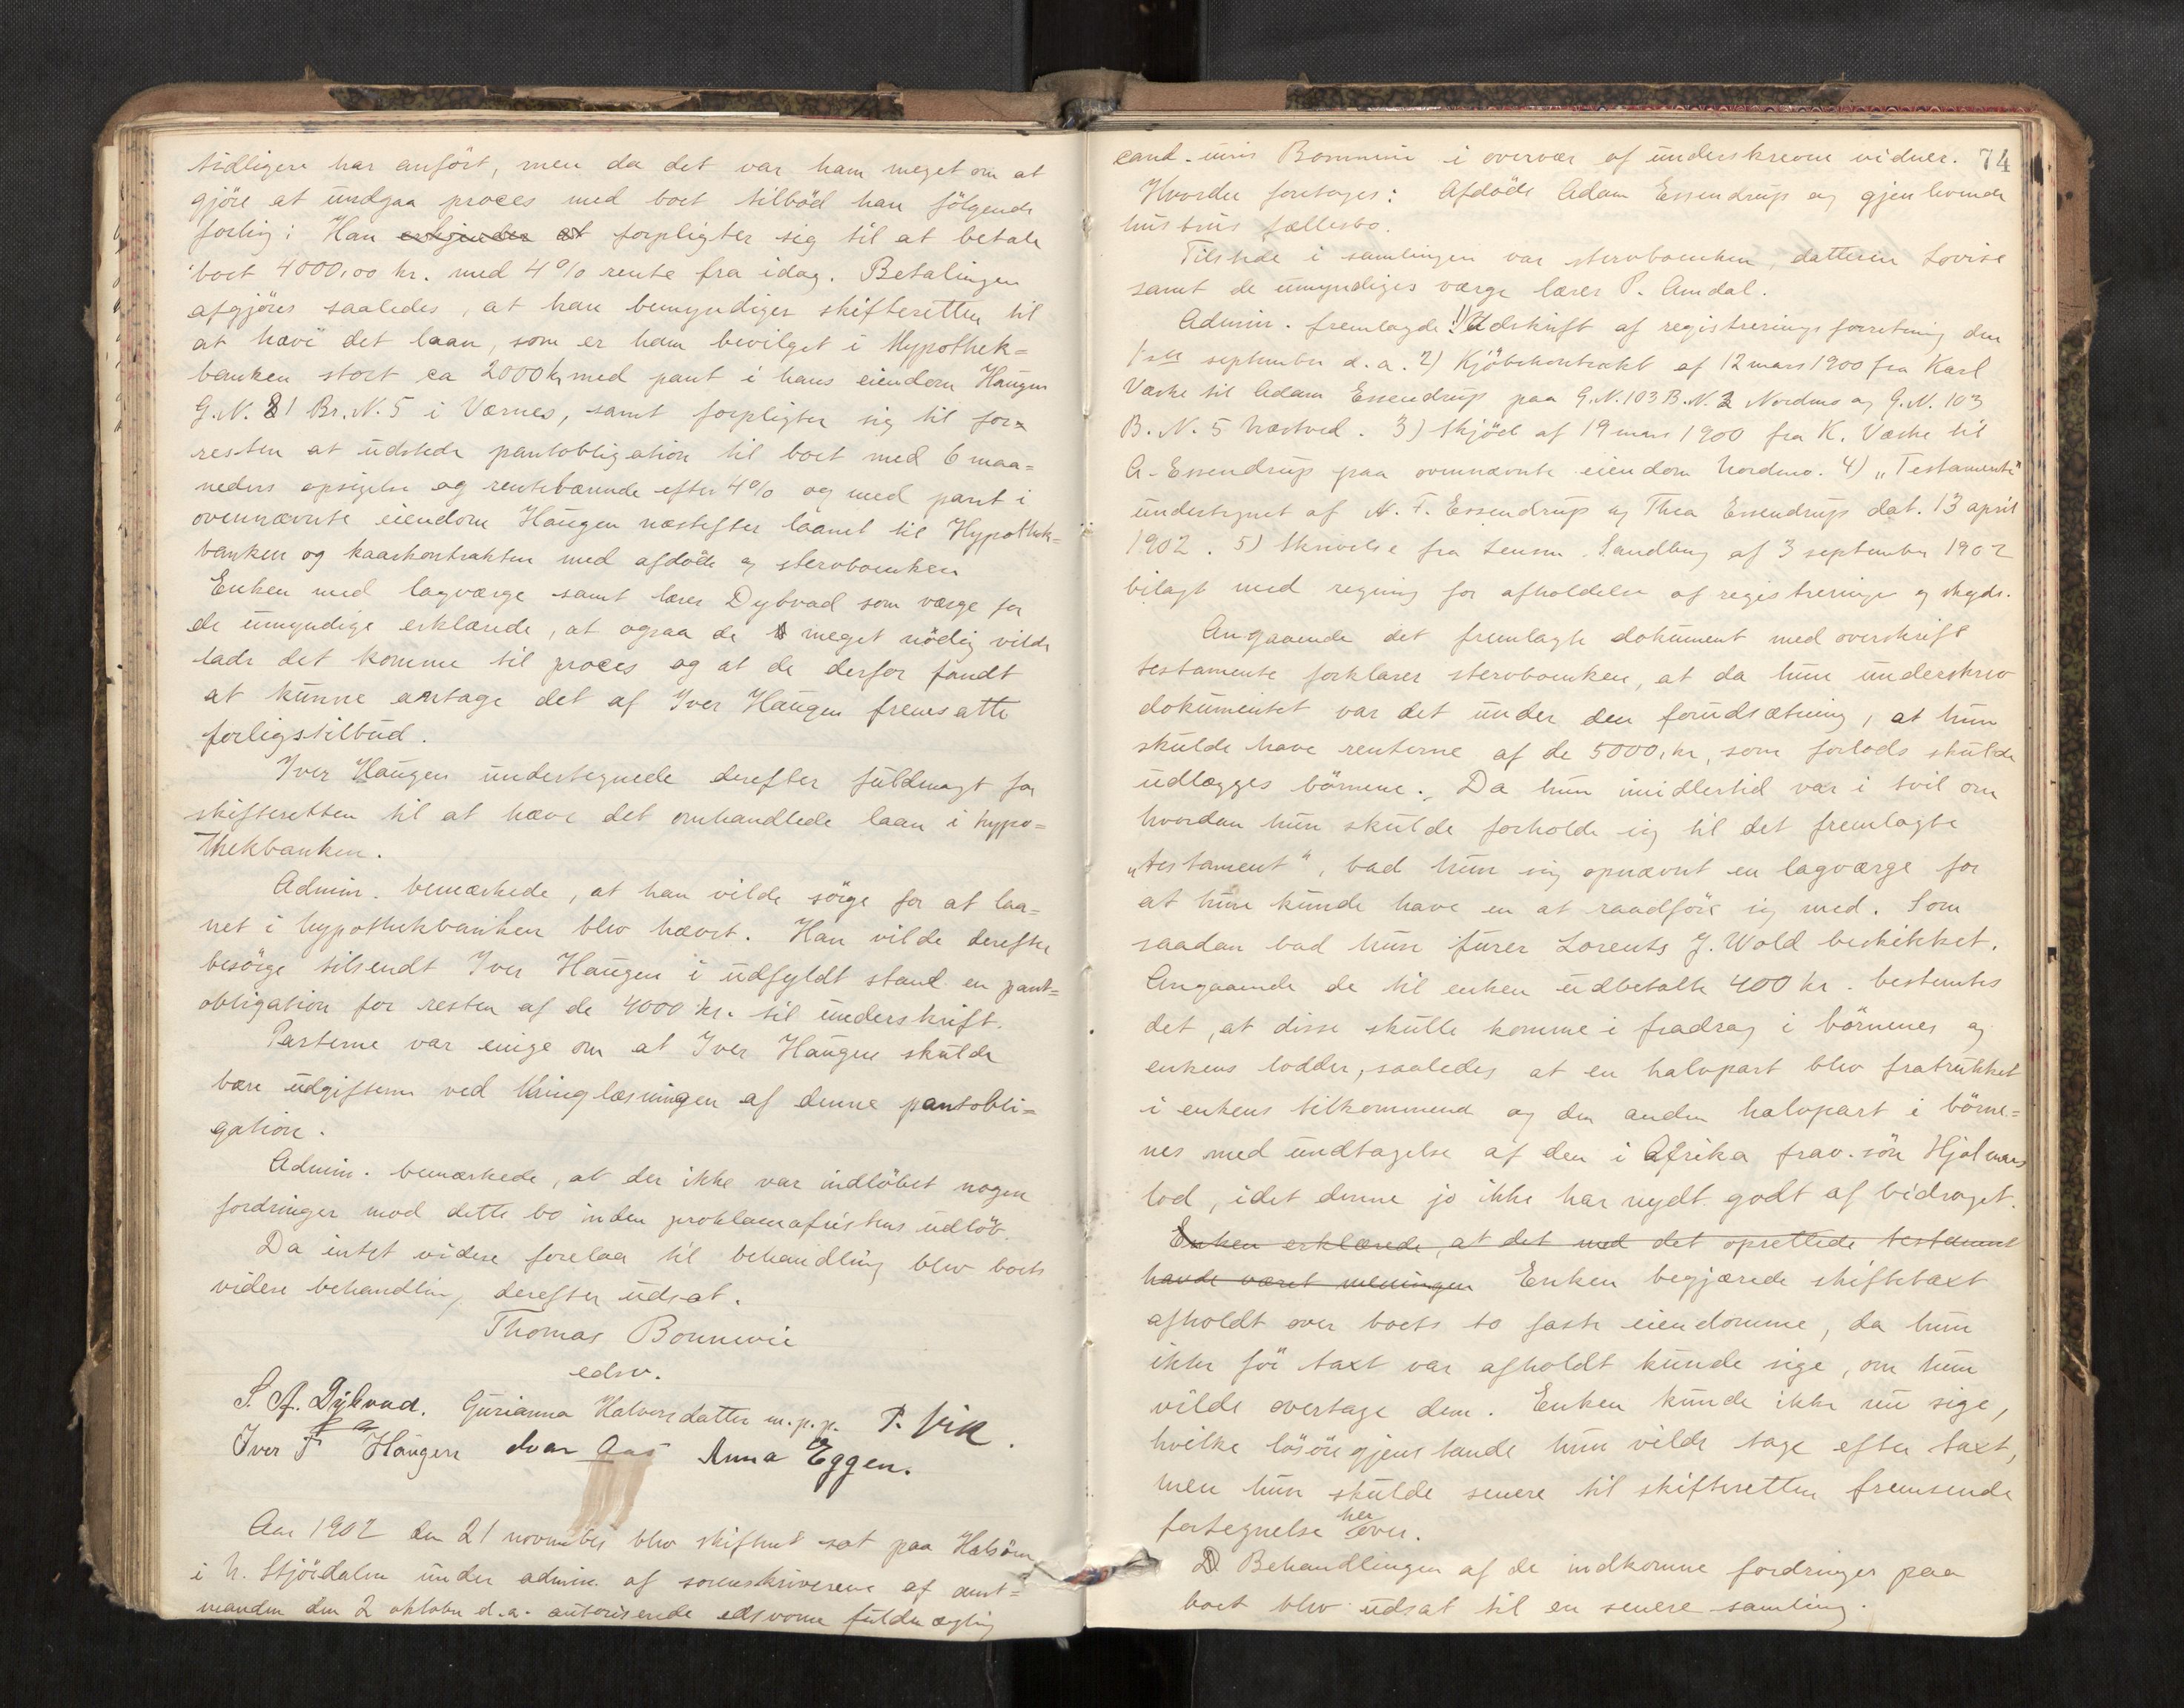 tidligere har anført, men da det var ham meget om at
gjøre at undgaa proces med boet tilbød han følgende
forlig: Han erkjender at forpligter sig til at betale
boet 4000,00 kr. med 4% rente fra idag. Betalingen
afgjøres saaledes, at han bemyndiger skifteretten til
at hæve det laan, som er ham bevilget i Hypothek=
banken stort ca 2000 kr med pant i hans eiendom Haugen
G.N. 81 Br.N. 5 i Værnes, samt forpligter sig til for
resten at udstede pantobligation til boet med 6 maa=
neders opsigelse og rentebærende efter 4% og med pant i
ovennævnte eiendom Haugen næstefter laanet til Hypothek=
banken og kaarkontrakten med afdøde og stervboenken
Enken med lagværge samt lærer Dybvad som værge for
de umyndige erklærede, at ogsaa de meget nødig vilde
lade det komme til proces og at de derfor fandt
at kunne antage det af Iver Haugen fremsatte
forligstilbud.
Iver Haugen undertegnede derefter fuldmagt for
skifteretten til at hæve det omhandlede laan i hypo=
thekbanken.
Admin. bemærkede, at han vilde sørge for at laa=
net i hypothekbanken blev hævet. Han vilde derefter
besørge tilsendt Iver Haugen i udfyldt stand en pant=
obligation for resten af de 4000 kr. til underskrift.
Parterne var enige om at Iver Haugen skulde
bære udgifterne ved thinglæsningen af denne pantobli=
gation.
Admin. bemærkede, at der ikke var indløbet nogen
fordringer mod dette bo inden proklamafristens udløb.
Da intet videre forelaa til behandling blev boets
videre behandling derefter udsat.
Thomas Bonnevie
edsv.
S. A. Dybvad. Gurianna Halvorsdatter m.p.p. P. Vik.
Iver F Haugen Ivar Aas Anna Eggen.
Aar 1902 den 21 november blev skifteret sat paa Halsøen
i N. Stjørdalen under admin. af sorenskriverens af amt=
manden den 2 oktober d.a. autoriserede edsvorne fuldmægtig
74
cand. juris Bonnevie i overvær af underskrevne vidner.
Hvorda foretages: Afdøde Adam Essendrup og gjenlevende
hustrus fællesbo.
Tilstede i samlingen var stervboenken, datteren Lovise
samt de umyndiges værge lærer P. Amdal.
Admin. fremlagde 1) Udskrift af registreringsforretning den
1ste september d.a. 2) Kjøbekontrakt af 12 mars 1900 fra Karl
Værke til Adam Essendrup paa G.N. 103 B.N. 2 Nordmo og G.N. 103
B.N. 5 . 3) Skjøde af 19 mars 1900 fra K. Værke til
A. Essendrup paa ovennævnte eiendom Nordmo. 4) „Testamente"
undertegnet af A. T. Essendrup og Thea Essendrup dat. 13 april
1902. 5) Skrivelse fra Lensm. Sandberg af 3 september 1902
bilagt med regning for afholdelse af registrering og skyds.
Angaaende det fremlagte dokument med overskrift
testamente forklarer stervboenken, at da hun underskrev
dokumentet var det under den forudsætning, at hun
skulde have renterne af de 5000, kr, som forlods skulde
udlægges børnene. Da hun imidlertid var i tvil om
hvordan hun skulde forholde sig til det fremlagte
„testament", bad hun sig opnævnt en lagværge for
at hun kunde have en at raadføre sig med. Som
saadan bad hun furer Lorents J. Wold beskikket.
Angaaende de til enken udbetalte 400 kr. bestemtes
det, at disse skulle komme i fradrag i børnenes og
enkens lodder, saaledes at en halvpart blev fratrukket
i enkens tilkommende og den anden halvpart i børne=
nes med undtagelse af den i Afrika frav. søn Hjalmars
lod, idet denne jo ikke har nydt godt af bidraget.
Enken erklærede, at det med det oprettede testament
havde været meningen Enken begjærede skiftetaxt
afholdt over boets to faste eiendomme, da hun
ikke før taxt var afholdt kunde sige, om hun
vilde overtage dem. Enken kunde ikke nu sige,
hvilke løsøregjenstande hun vilde tage efter taxt,
men hun skulde senere til skifteretten fremsende
fortegnelse herover.
Behandlingen af de indkomne fordringer paa
boet blev udsat til en senere samling.